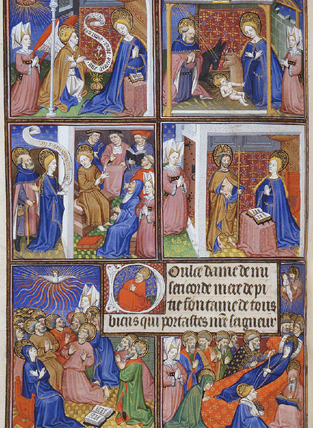 Doulce dame de mi
sericorde mere de pi
tie fontaine de tous
biens qui portastes nr̄e seigneur